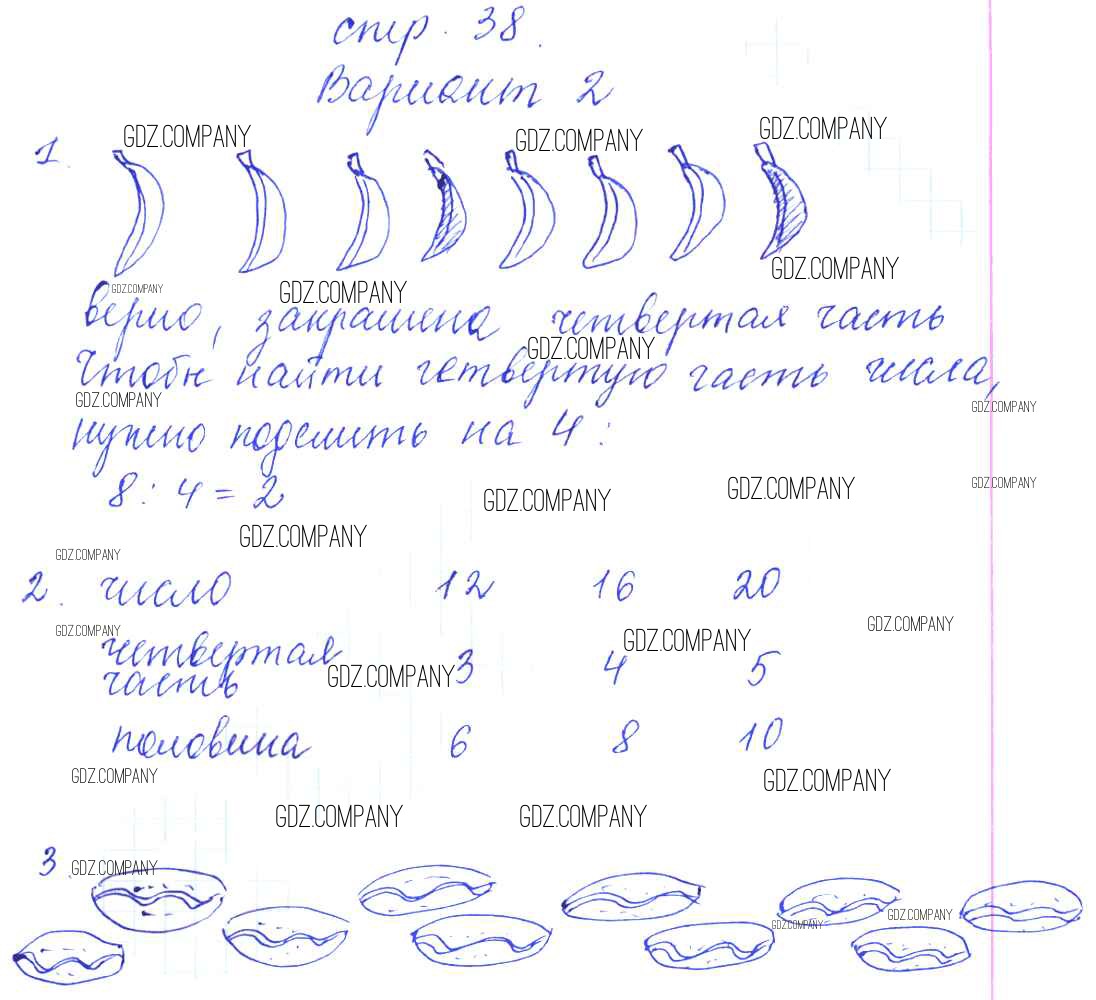 стр. 38.
Вариант 2
GDZ.COMPANY
GDZ.COMPANY
GDZ.COMPANY
1.
GDZ.COMPANY
GDZ.COMPANY
GDZ.COMPANY
верно, закрашена четвертая часть
GDZ.COMPANY
Чтобы найти четвертую часть числа,
GDZ.COMPANY
GDZ.COMPANY
нужно поделить на 4:
8 : 4 = 2
GDZ.COMPANY
GDZ.COMPANY
GDZ.COMPANY
GDZ.COMPANY
GDZ.COMPANY
2. число 12 16 20
GDZ.COMPANY
GDZ.COMPANY
GDZ.COMPANY
четвертая
часть 3 4 5
GDZ.COMPANY
половина 6 8 10
GDZ.COMPANY
GDZ.COMPANY
GDZ.COMPANY
GDZ.COMPANY
3.
GDZ.COMPANY
GDZ.COMPANY
GDZ.COMPANY